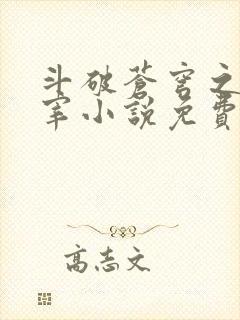 斗破蒼穹之
宰小說免費
高志文